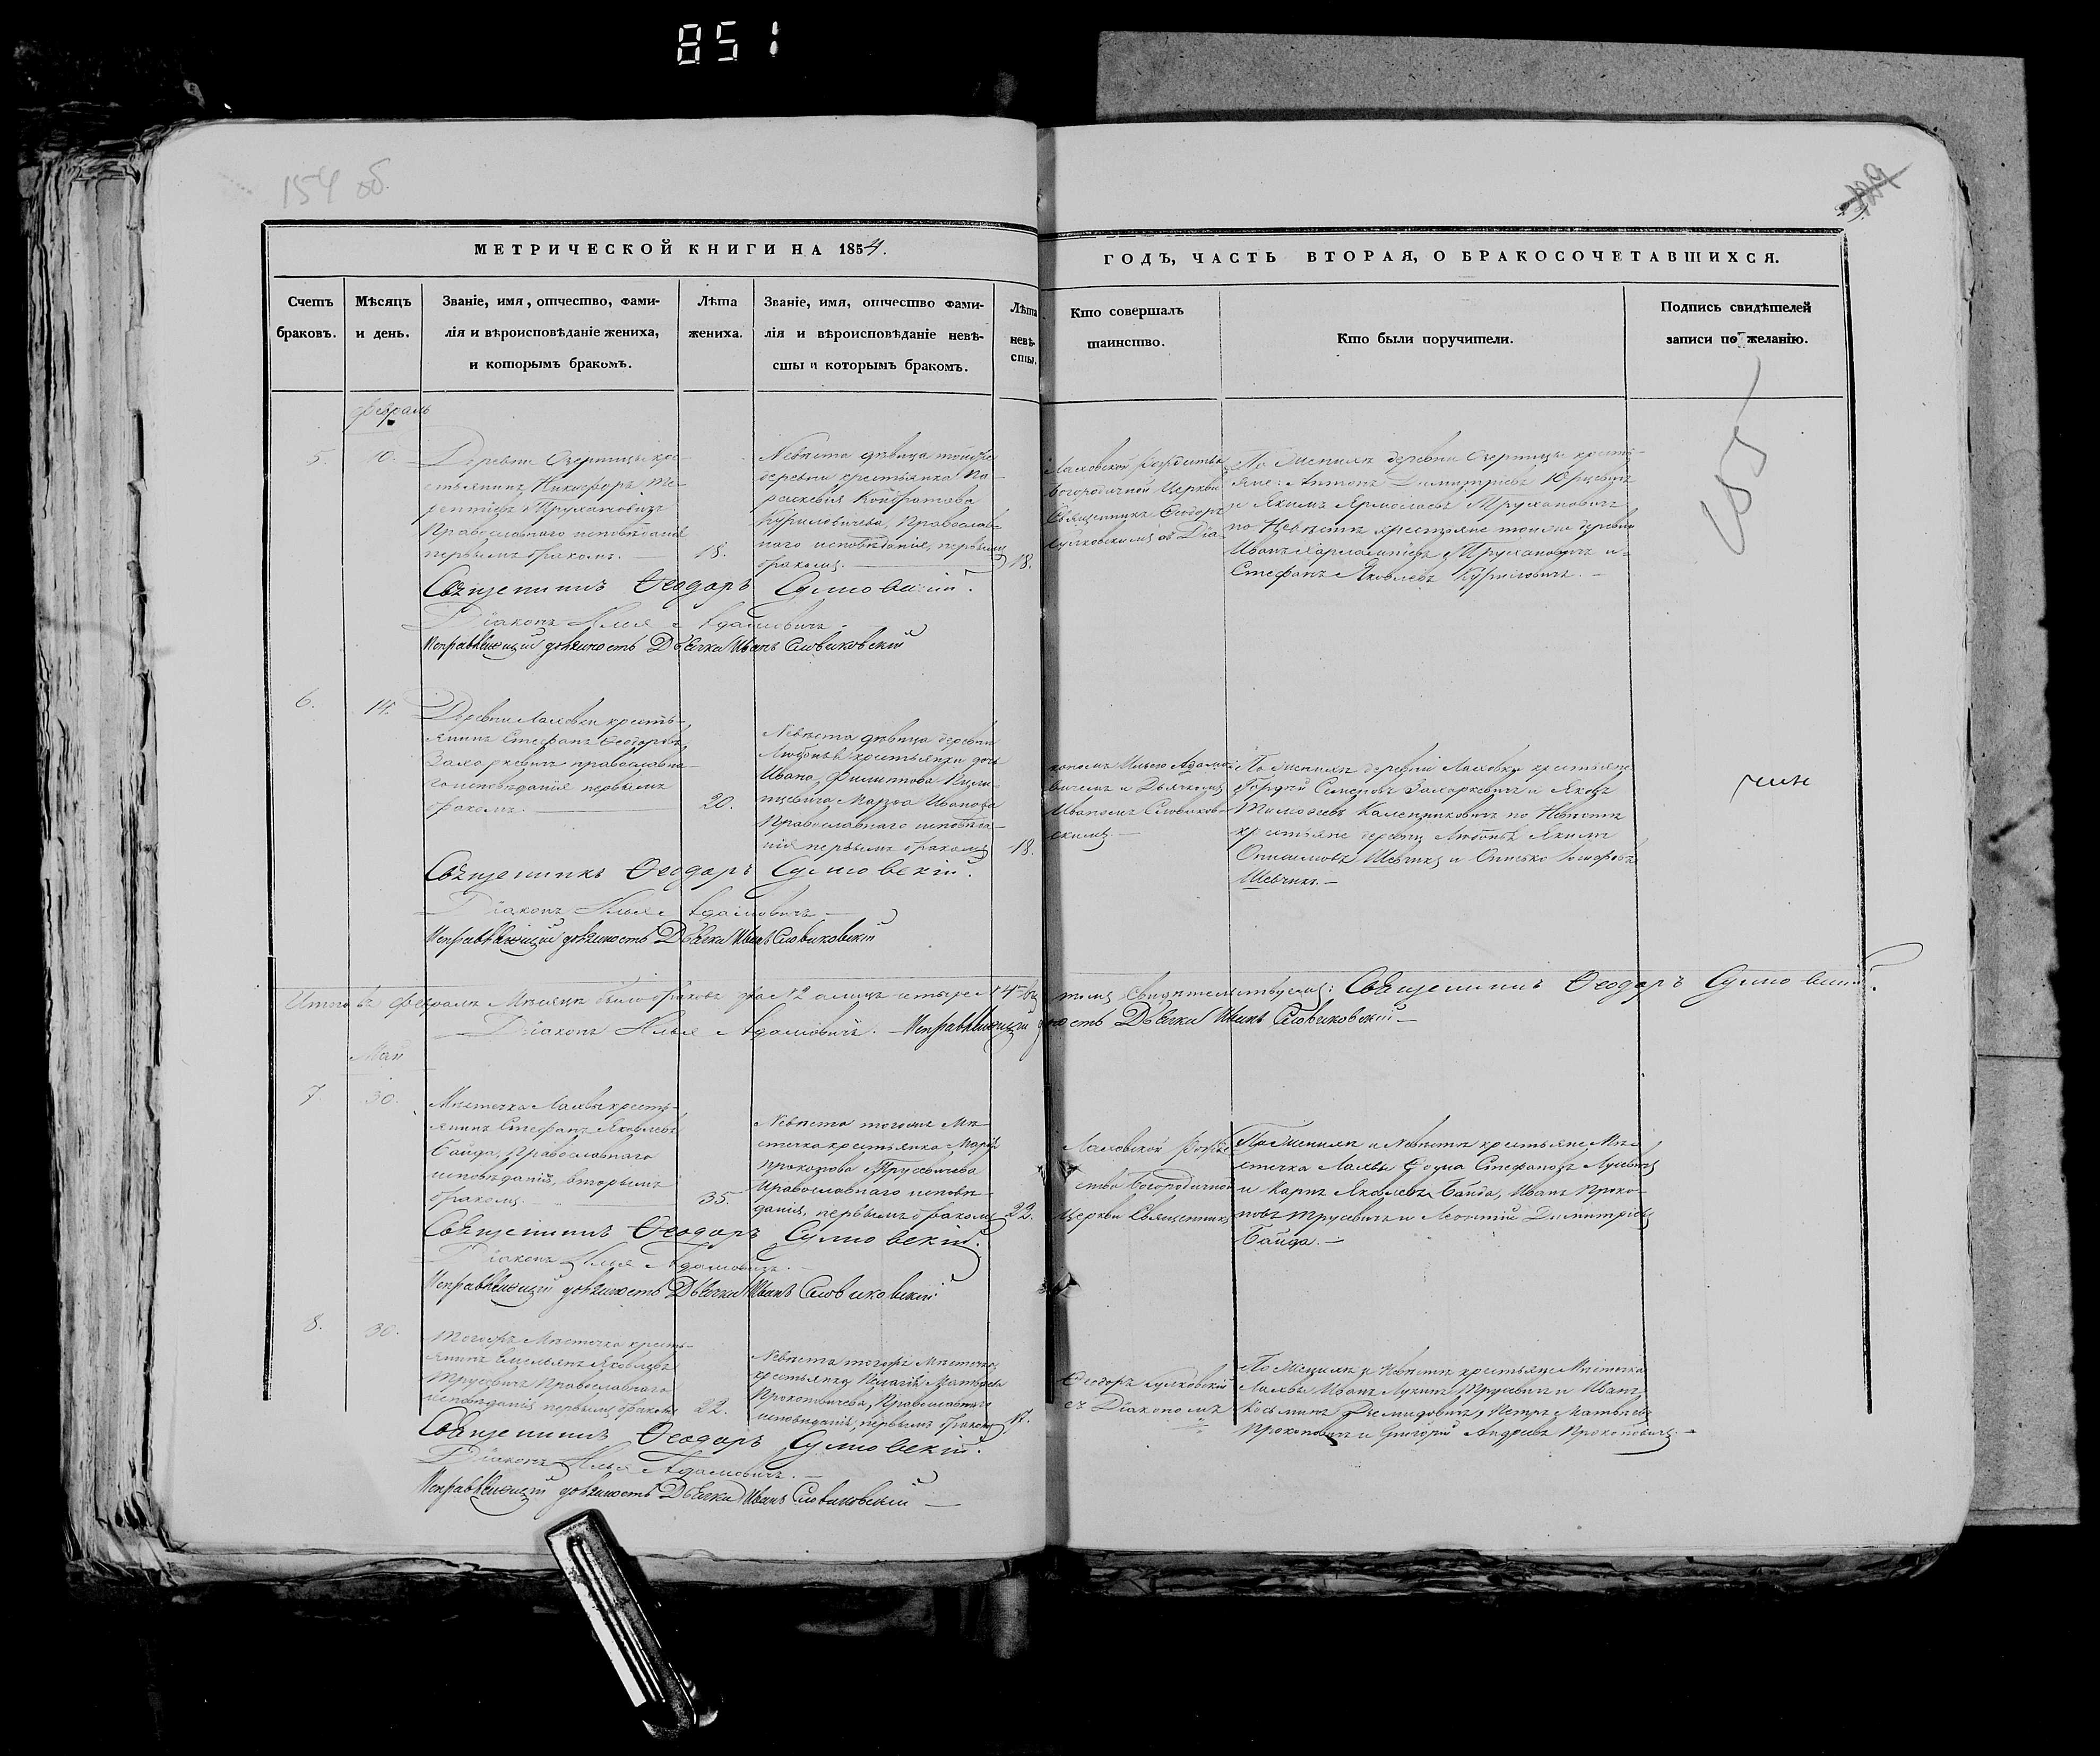 851
154 об.
МЕТРИЧЕСКОЙ КНИГИ НА 1854.
ГОДЪ, ЧАСТЬ ВТОРАЯ, О БРАКОСОЧЕТАВШИХСЯ.
Счетъ браковъ.
Мѣсяцъ и день.
Званіе, имя, отчество, фами-
лія и вѣроисповѣданіе жениха,
и которымъ бракомъ.
Лѣта жениха.
Званіе, имя, отчество фами-
лія и вѣроисповѣданіе невѣ-
сты и которымъ бракомъ.
Лѣта невѣ-
сты.
Кто совершалъ
таинство.
Кто были поручители.
Подпись свидѣтелей
записи по желанію.
Февраль
5.
10.
Деревни Озерницы кре-
стьянинъ Никифоръ Те-
рентіевъ Трухановичъ
Православнаго исповѣданія
первымъ бракомъ.
18.
Невѣста дѣвица тойже
деревни крестьянка Па-
раскевія Кондратова
Куриловичева, Православ-
наго исповѣданія, первымъ
бракомъ.
18.
Лаховской Рождество
Богородичной Церкви
Священникъ Ѳеодоръ
съ Діа-
По Женихѣ деревни Озерницы кресть-
яне: Антонъ Димитріевъ Юрцевичъ
и Якимъ Ярмолаевъ Трухановичъ
по Невѣстѣ крестьяне тойже деревни
Иванъ Харлампіевъ Трухановичъ и
Стефанъ Яковлевъ Куриловичъ.
Священникъ Ѳеодоръ
Діаконъ Илья Адамовичъ
Исправляющій должность Дьячка Иванъ Словиковскій
6.
14.
Деревни Лаховки кресть-
янинъ Стефанъ Ѳеодоровъ
Захаркевичъ православна-
го исповѣданія первымъ
бракомъ.
20.
Невѣста дѣвица деревни
крестьянки дочь
Ивана Филиппова
Марѳа Иванова
Православнаго исповѣда-
нія первымъ бракомъ
18.
кономъ Ильею Адамо-
вичемъ и Дьячкомъ
Иваномъ Словиков-
скимъ.
По Женихѣ деревни Лаховки крестьяне
Семеновъ Захаркевичъ и Яковъ
Тимоѳеевъ Каленниковичъ по Невѣстѣ
крестьяне деревни Якимъ
Шевчикъ и
Шевчикъ.
Священникъ Ѳеодоръ
Діаконъ Илья Адамовичъ
Исправляющій должность Дьячка Иванъ Словиковскій
Итого въ Февралѣ Мѣсяцѣ было браковъ два 2 а лицъ четыре 4 въ
томъ свидѣтельствуемъ: Священникъ Ѳеодоръ
Діаконъ Илья Адамовичъ. Исправляющій должность Дьячка Иванъ Словиковскій
Май
7.
30.
Мѣстечка Лахвы кресть-
янинъ Стефанъ Яковлевъ
Байда, Православнаго
исповѣданія, вторымъ
бракомъ.
35.
Невѣста тогожъ Мѣ-
стечка крестьянка Марія
Прокопова Трусевичева
Православнаго исповѣ-
данія, первымъ бракомъ
22.
Лаховской Рожде-
ства Богородичной
Церкви Священникъ
По Женихѣ и Невѣстѣ крестьяне Мѣ-
стечка Лахвы Ѳома Стефановъ
и Карпъ Яковлевъ Байда, Иванъ Проко-
повъ Трусевичъ и Леонтій Димитріевъ
Байда.
Священникъ Ѳеодоръ
Діаконъ Илья Адамовичъ.
Исправляющій должность Дьячка Иванъ Словиковскій
8.
30.
Тогожъ Мѣстечка кресть-
янинъ Емельянъ Яковлевъ
Трусевичъ Православнаго
исповѣданія первымъ бракомъ
22.
Невѣста тогожъ Мѣстечка
крестьянка Пелагія Матвѣева
Прокоповичева, Православнаго
исповѣданія, первымъ бракомъ
17.
Ѳеодоръ
съ Діакономъ
По Женихѣ и Невѣстѣ крестьяне Мѣстечка
Лахвы Иванъ Лукинъ Трусевичъ и Иванъ
Косьминъ Демидовичъ, Петръ Матвѣевъ
Прокоповичъ и Григорій Андреевъ Прокоповичъ.
Священникъ Ѳеодоръ
Діаконъ Илья Адамовичъ.
Исправляющій должность Дьячка Иванъ Словиковскій